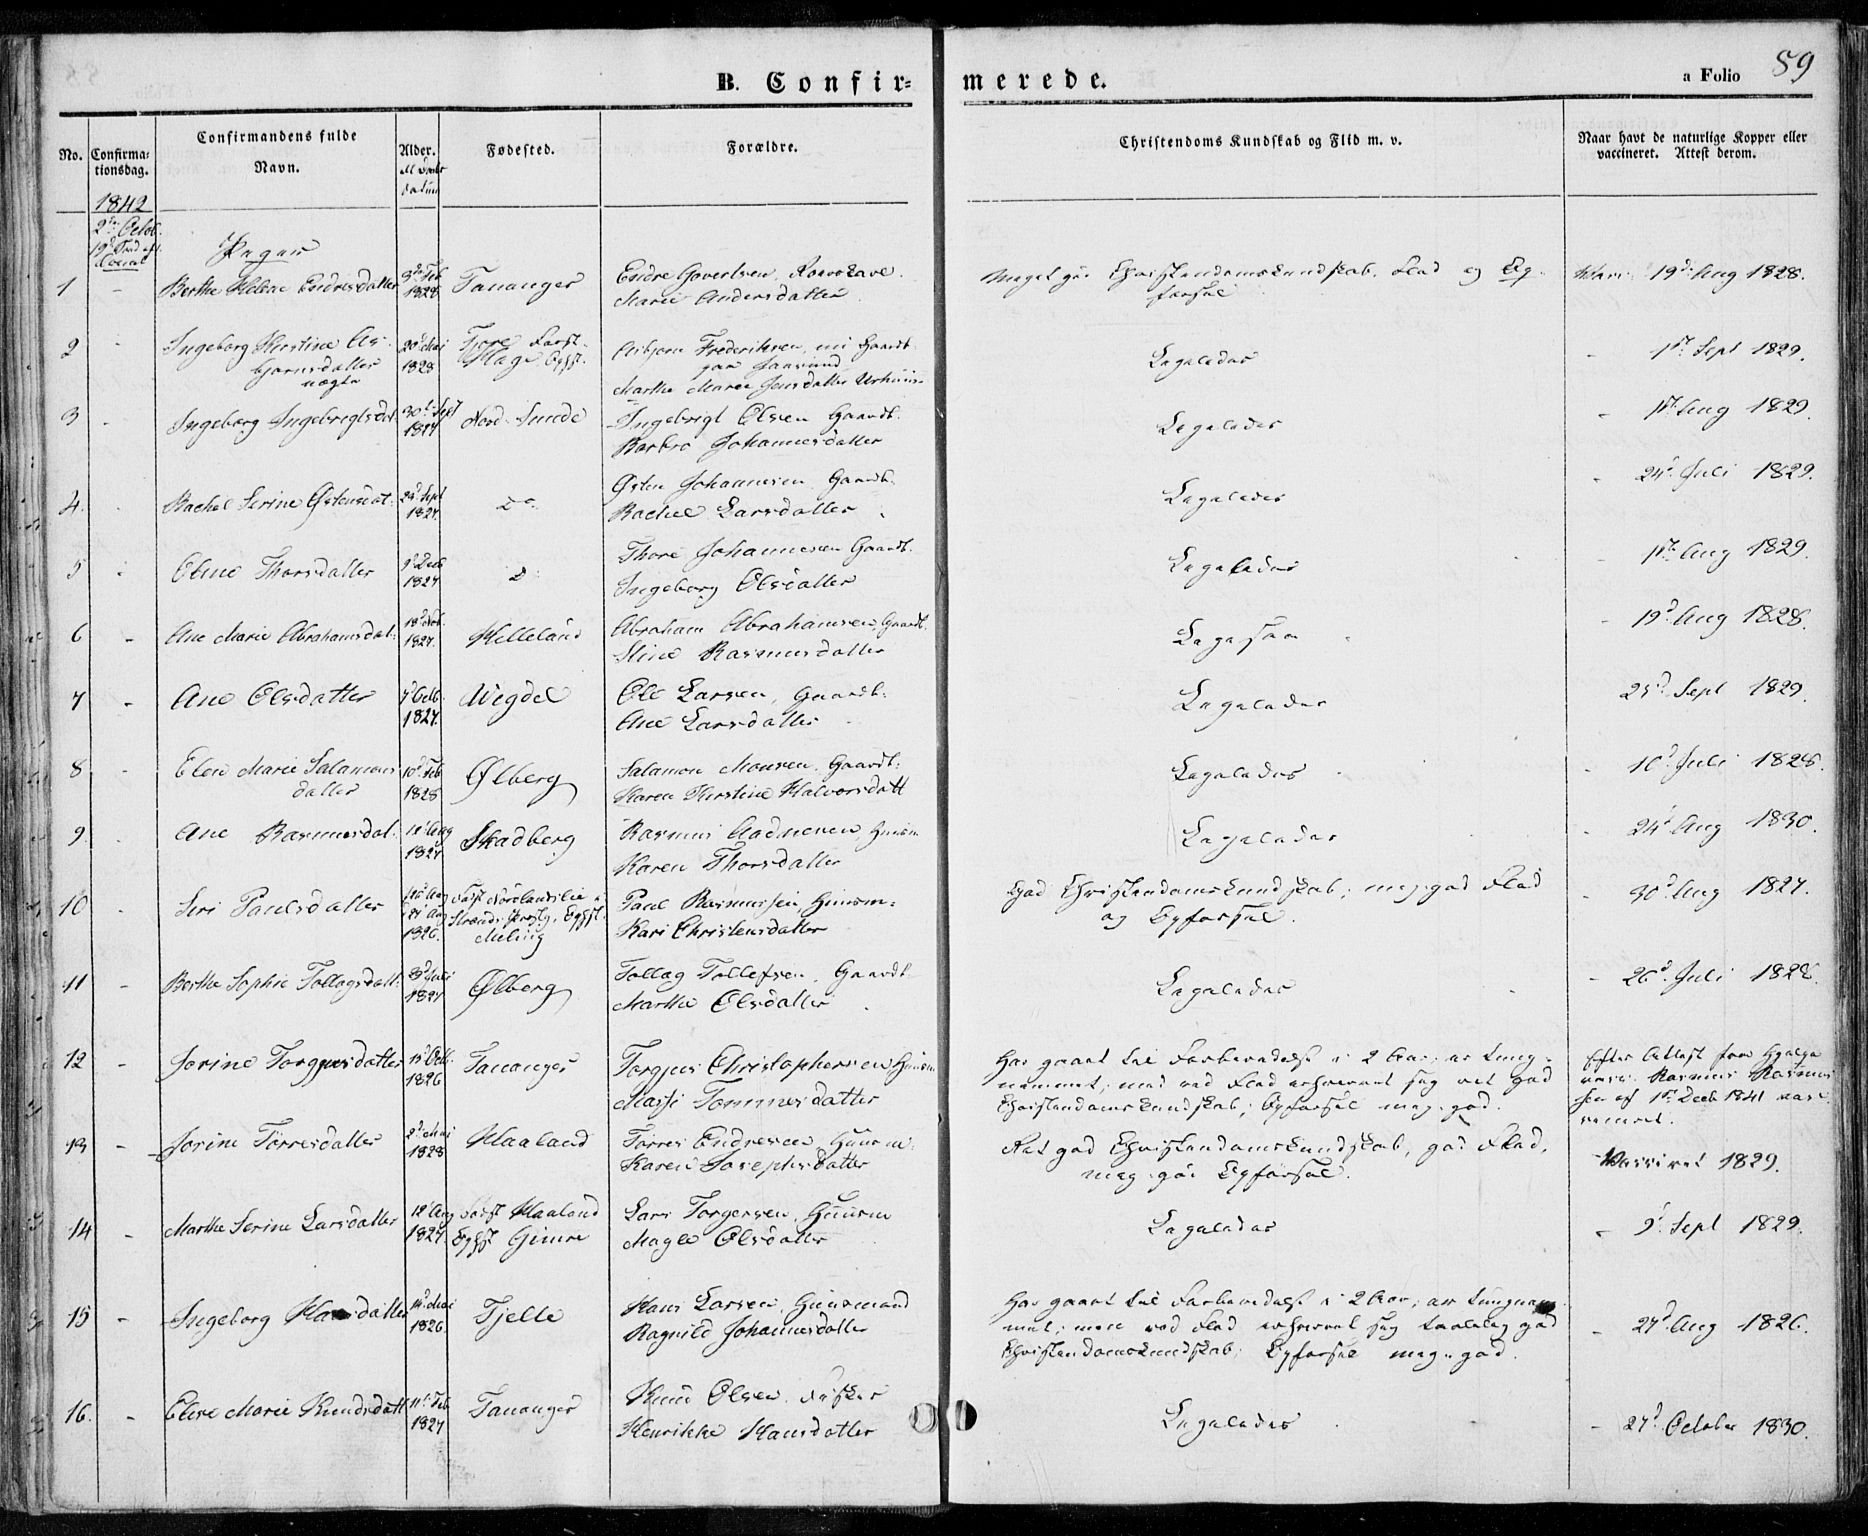 B. Confir=
merede.
a Folio 89
No.
Confirma=
tionsdag.
Confirmandens fulde
Navn.
Alder.
Fødested.
Forældre.
Christendoms Kundskab og Flid m. v.
Naar havt de naturlige Kopper eller
vaccineret. Attest derom.
1842
2den Octob.
Piger
1 Berthe Helene Endresdatter 3die Feb 1828 Tananger Endre Govertsen
Marie Andersdatter
Meget god Christendomskundskab, Flid og Op-
førsel
19d Aug 1828.
2 Ingeborg Kirstine As-
bjørnsdatter
uægte
20d Mai
1828
Tjore
Hage
Asbjørn Frederiksen, nu Gaardb.
paa
Marthe Marie Jonsdatter
Ligeledes
1ste Sept 1829.
3 Ingeborg Ingebrigtsdat. 30te Sept
1827
Nord-Sunde
Ingebrigt Olsen Gaardb.
Barbro Johannesdatter
Ligeledes
1ste Aug 1829.
4. Rachel Serine Østensdat. Sept
1827.
do
Østen Johannesen Gaardb.
Rachel Larsdatter
Ligeledes
24d Juli 1829.
5 Oline Thorsdatter 9d Decb
1827
do
Thore Johannesen Gaardb.
Ingeborg Olsdatter
Ligeledes
1ste Aug 1829.
6 Ane Marie Abrahamsdat:
1827.
Helleland
Abraham Abrahamsen, Gaardb.
Stine Rasmusdatter
Ligesaa
19d Aug 1828.
7 Ane Olsdatter 7d Octb.
1827.
Wigdel
Ole Larsen, Gaardb.
Ane Larsdatter
Ligeledes
25d Sept 1829.
8 Elen Marie Salamons
datter
10d Feb
1828
Ølberg
Salamon Monsen, Gaardb.
Karen Kirstine Halvorsdatt
Ligeledes
16d Juli 1828.
9. Ane Rasmusdat. 12d Aug
1827
Skadberg
Rasmus Aadnesen, Huusm
Karen Thorsdatter
Ligeledes
24d Aug 1830.
10 Siri Paulsdatter
1826.
Født Nordlandslie i
Strands Præstg., Opfst
Meling
Paul Rasmussen, Huusm.
Kari Christensdatter
God Christendomskundskab; meg. god Flid
og Opførsel.
30d Aug 1827.
11 Berthe Sophie Tollagsdatt. Juli
1827
Ølberg
Tollag Tollefsen, Gaardb.
Marthe Olsdatter
Ligeledes
26d Juli 1828.
12 Jorine Torgjusdatter 15d Octb.
1826
Tananger
Torgjus Christophersen Huusm
Massi Tønnesdatter
Har gaaet til Forberedelse i 2 Aar; er tung-
nemmet; men ved Flid erhvervet sig ret god
Christendomskundskab; Opførsel meg. god.
Efter Attest fra Hjelpe
vacc. Rasmus Rasmus
sen af 1ste Decb 1841 vac
cineret.
13 Jorine Tørresdatter 2d Mai
1828
Haaland
Tørres Endresen, Huusm.
Karen Josephsdatter
Ret god Christendomskundskab, god Flid,
meg. god Opførsel.
Vaccinet 1829.
14 Marthe Serine Larsdatter 12d Aug
1827.
Født Haaland
Opfst Gimre
Lars Torgersen, Huusm
Magle Olsdatter
Ligeledes
9d Sept 1829.
15 Ingeborg Hansdatter 14d Mai
1826
Tjelle
Hans Larsen, Huusmand
Ragnild Johannesdatter
Har gaaet til Forberedelse i 2 Aar; er tungnem
met; men ved Flid erhvervet sig taalelig god
Christendomskundskab; Opførsel meg. god.
27d Aug 1826.
16. Elene Marie Knudsdatt 11te Feb
1827
Tananger
Knud Olsen, Fisker
Henrikke Hansdatter
Ligeledes
27d October 1830.